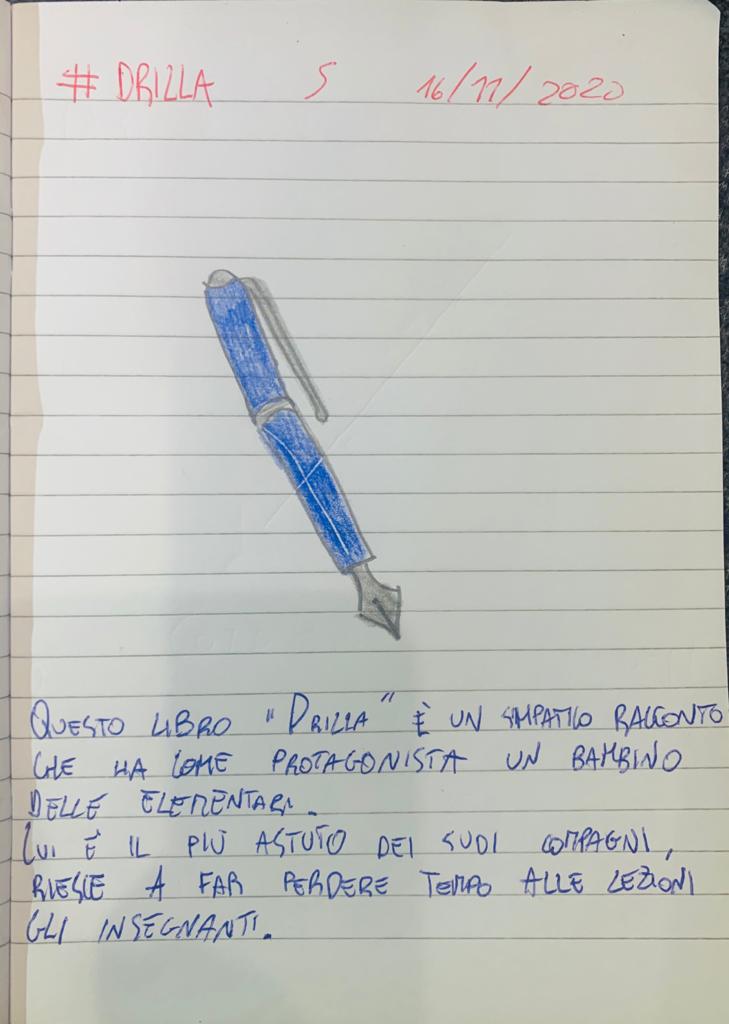 # DRILLA 5 16/11/2020
QUESTO LIBRO "DRILLA" È UN SIMPATICO RACCONTO
CHE HA COME PROTAGONISTA UN BAMBINO
DELLE ELEMENTARI.
LUI È IL PIÙ ASTUTO DEI SUOI COMPAGNI,
RIESCE A FAR PERDERE TEMPO ALLE LEZIONI
GLI INSEGNANTI.